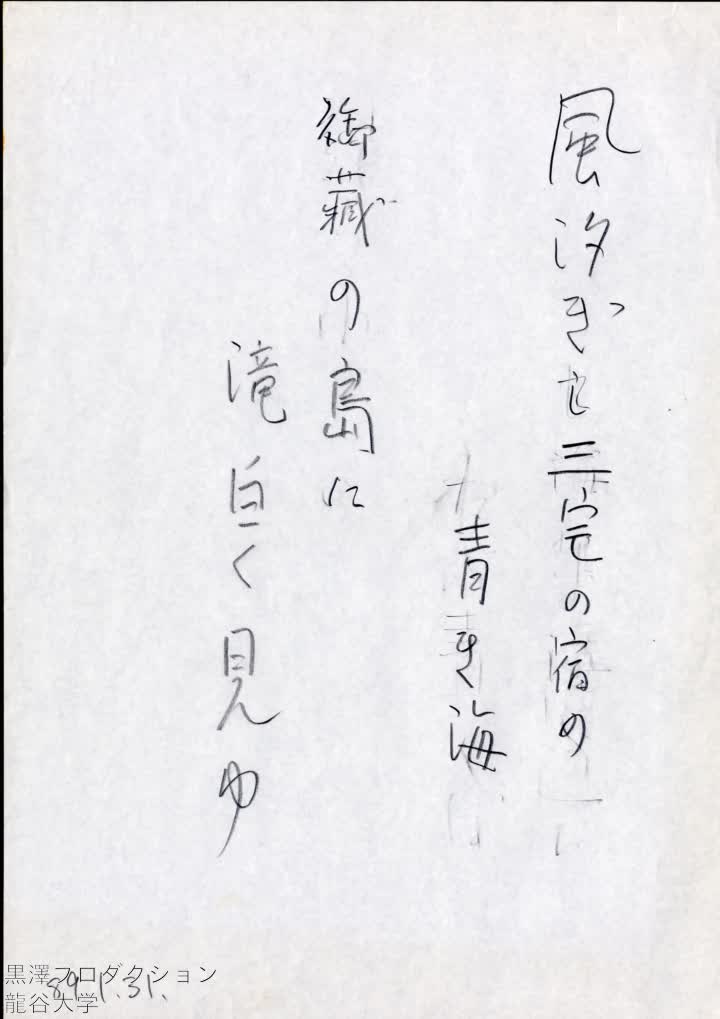 風汐ぎて三宅の宿の
青き海
御蔵の島に
滝白く見ゆ
黒澤プロダクション
龍谷大学
89.1.31.